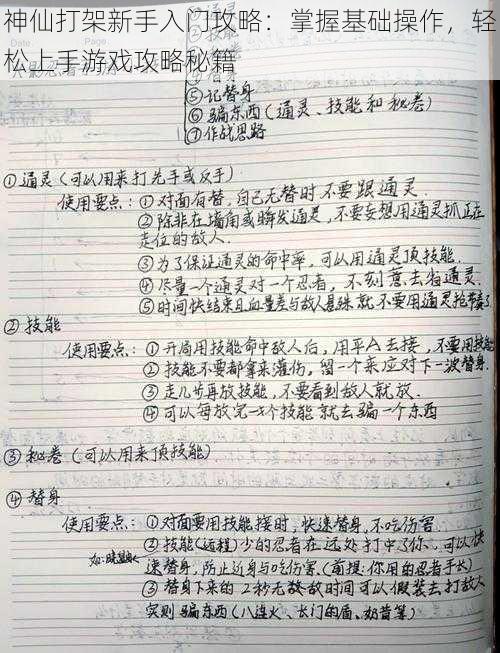 神仙打架新手入门攻略：掌握基础操作，轻
松上手游戏攻略秘籍
⑤记替身
⑥骗东西(通灵、技能和秘卷)
⑦作战思路
①通灵(可以用来打先手或反手)
使用要点：①对面有替，自己无替时不要跟通灵.
②除非在墙角或瞬发通灵，不要妄想用通灵抓正在
走位的敌人.
③为了保证通灵的命中率，可以用通灵顶技能.
④尽量一个通灵对一个忍者，不刻意去省通灵.
⑤时间快结束且血量差与敌人悬殊就不要用通灵抢节奏了
②技能
使用要点：①开局用技能命中敌人后，用平A去接，不要用技能
②技能不要都拿来灌伤，留一个来应对下一波替身.
③走几步再放技能，不要看到敌人就放.
④可以每放完一个技能就去骗一个东西
③秘卷(可以用来顶技能)
④替身
使用要点：①对面要用技能接时，快速替身，不吃伤害
②技能(远程)少的忍者在远处打中了你，可以快
速替身，防止近身与吃伤害.(前提：你用的忍者手长)
③替身下来的2秒无敌时间可以假装去打敌人
实则骗东西(八连火、长门的盾、奶昔等)